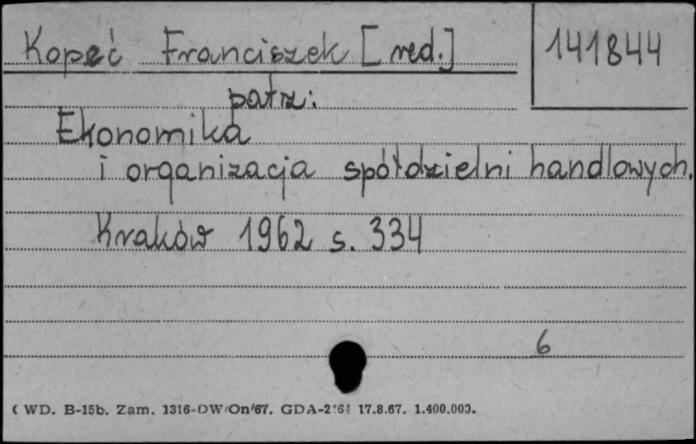 Kopeć Franciszek [red.]
141844
patrz:
Ekonomika
i organizacja spółdzielni handlowych.
Kraków 1962 s. 334
6
WD. B-15b. Zam. 1316-DW/On/67. GDA-2 17.8.67. 1.400.000.